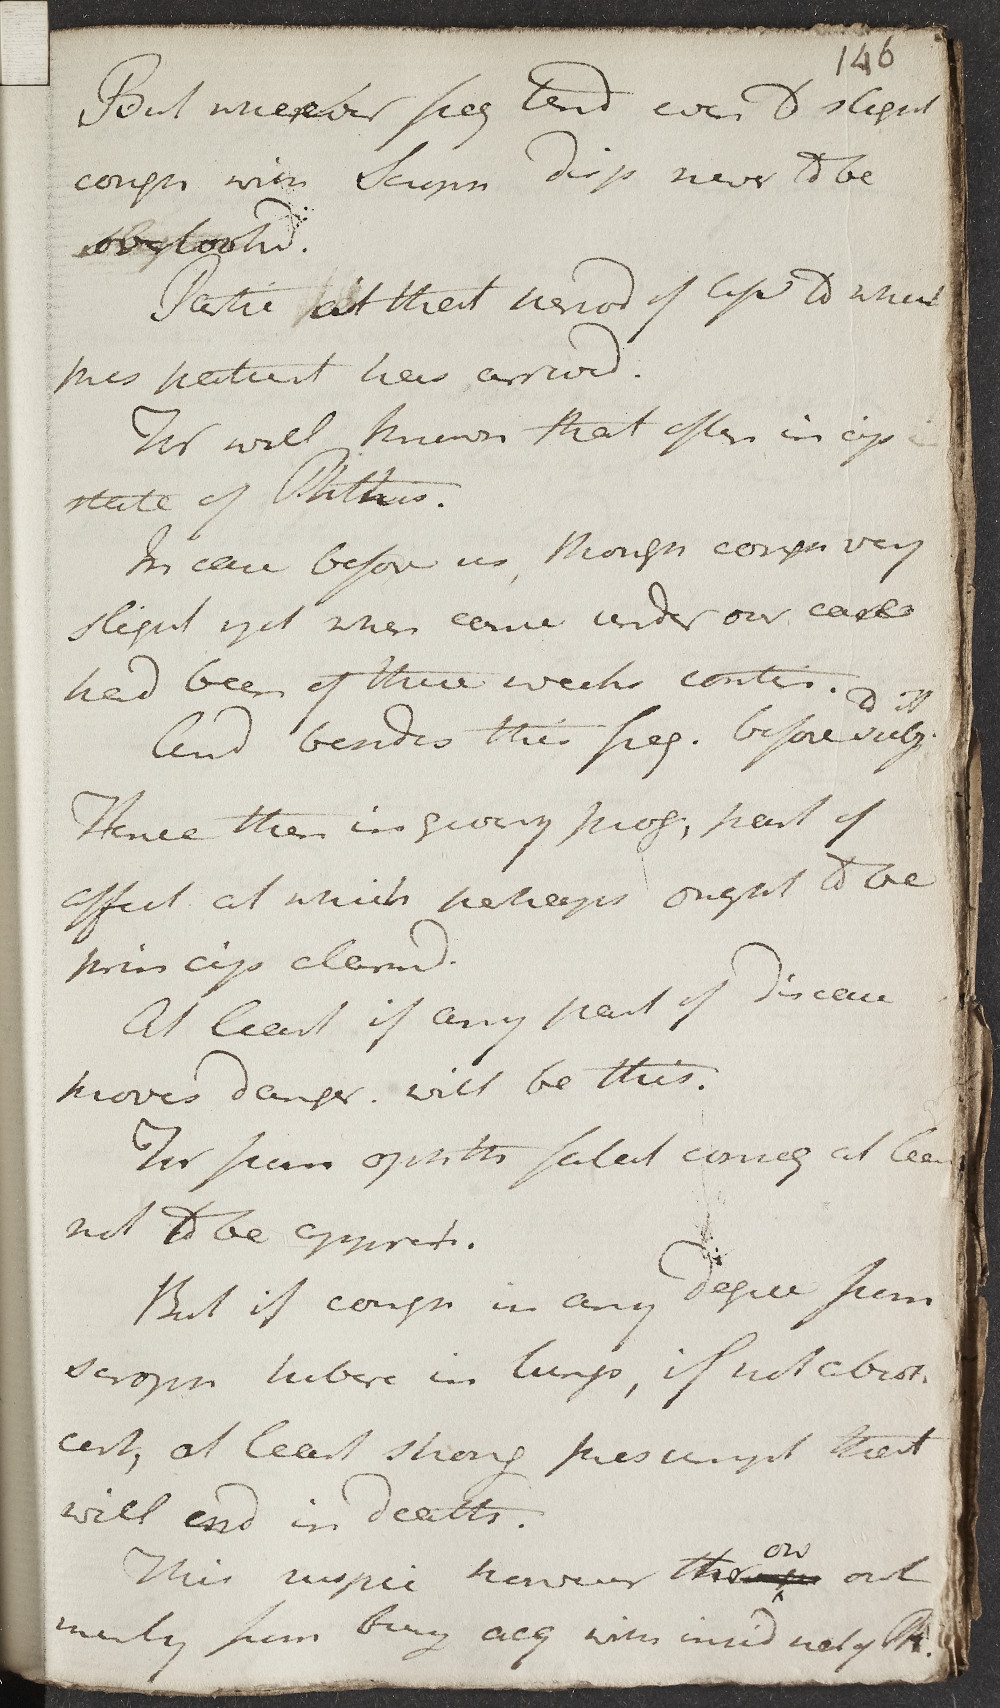 146
But wherever freq tend even to slight
cough with Scroph disp never to be
overlookd.
Partic at that period of life to which
this patient has arrivd.
For well known that often incip
state of Phthisis.
In case before us, though cough very
slight yet when came under our care
had been of three weeks contin.
And besides this freq. before to it subj.
Hence then in giving prog, part of
affect at which perhaps ought to be
princip alarmd.
At least if any part of disease
proves danger. will be this.
For from ophth fatal conseq at least
not to be appreh.
But if cough in any degree from
scroph tuberc in lungs, if not absol.
cert, at least strong presumpt that
will end in death.
This suspic however throw out
merely from being acq with insid nat of Ph.